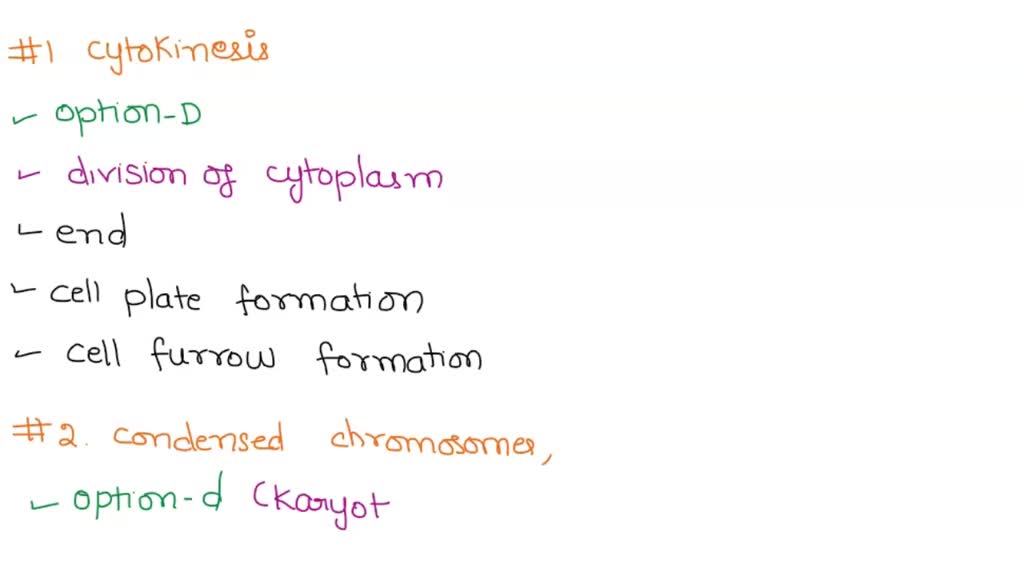 #1 cytokinesis
✓ option-D
✓ division of cytoplasm
✓ end
✓ cell plate formation
✓ cell furrow formation
#2. condensed chromosomes,
✓ option-d (Karyot